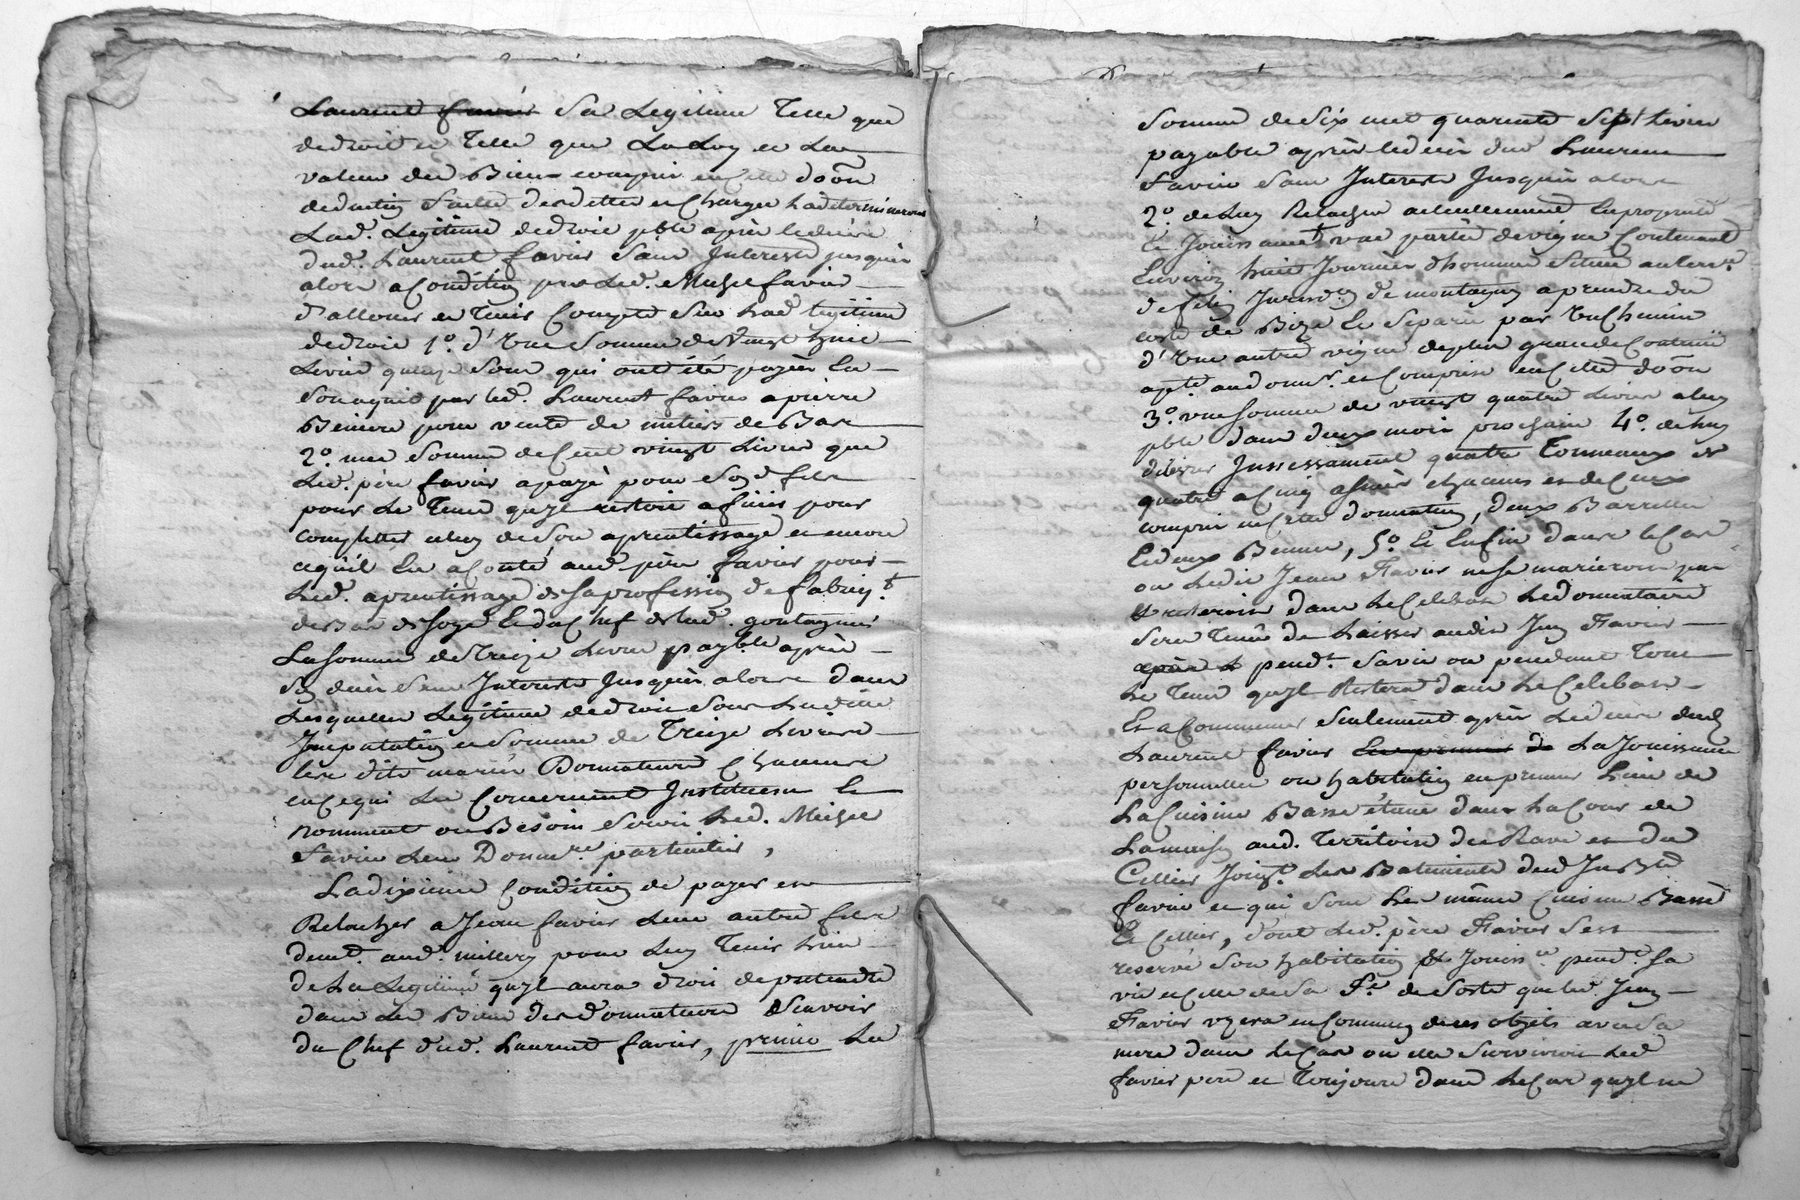 Laurent favier Sa Legitime Telle que
de droit et Telle que La Loy et La
valeur des Biens compris en Cette doôn
deduction faitte des dettes et Charges La determineront
Lad. Legitime de droit pble après le decès
dud. Laurent favier Sans Interests jusqu'à
alors a Condition par Led. Michel favier
d'allouer et Tenir Compte Sur Lad legitime
de droit 1.º d'Une Somme de Vingt huit
Livres quinze Sous qui ont été payés En
Son aquit par led. Laurent favier a pierre
Beniere pour vente de metiers de Bas
2.º une Somme de Cent vingt Livres que
Led. père favier a payé pour Sond fils
pour Le Tems qu'yl restoit a finir pour
completter celuy de Son aprentissage et encore
ce qu'il En a Couté aud père favier pour
Led. aprentissage de Sa profession de fabriqt
de Bas de Soye Et du Chef de lad. goutagnier
La Somme de Treize Livres payble après
Son decès Sans Interests Jusqu'à alors dans
Lesquelles Legitime de droit Sous Ladite
Imputation et Somme de Treize Livres
Les dits mariés Donnateurs Chacun
en Ce qui Les Concernent Instituent Et
nomment au Besoin Seroit Led. Michel
favier Leur Donnre particulier,
La dixieme Condition de payer et
Relacher a Jean favier Leur autre fils
demt. aud. millery pour Luy Tenir Lieu
de La Legitime qu'yl aura droit de pretendre
dans Les Biens des donnateurs Scavoir
du Chef dud. Laurent favier, primo La
Somme de Six cent quarente Sept Livres
payable après le decès dud Laurent
favier Sans Interests Jusqu'à alors
2.º de Luy Relacher actuellement En propriété
Et Jouissance une partie de vigne Contenant
Environ huit Journées d'hommes Située au terre
de Jurisdon de montagny a prendre du
coté de Bize Et Separée par Un Chemin
d'Une autre vigne de plus grande Contenue
apte aud donnr. et Comprise en Cette doôn
3.º une Somme de vingt quatre Livres a luy
pble dans deux mois prochain 4.º de luy
délivrer Incessament quatre Tonneaux de
quatre a Cinq asnées chacuns et de Ceux
compris en Cette donnation, deux Barrilles
Et deux Bennes, 5.º Et Enfin dans le Cas
ou Ledit Jean Favier ne se marieroit pas
Et resteroit dans Le Celibat Le donnataire
Sera Tenu de Laisser audit Jean Favier
après L pendt. Sa vie ou pendant Tout
Le Tems qu'yl Restera dans Le Celibat
Et a Commencer Seulement après Le decès dud
Laurent favier En premier de La Jouissance
personnelle ou habitation en premier Lieu de
La Cuisine Basse étant dans La Cour de
La maison aud. Territoire des Rave et du
Cellier Joigt. Les Batiments dud Jn Bte
favier et qui Sont Les même Cuisine Basse
Et Cellier, dont Led. père Favier S'est
reservé Son habitation Et Jouissce pendt Sa
vie et Celle de Sa Fe de Sorte que led. Jean
Favier uzera en Commun de ces objets avec Sa
mere dans Le Cas ou elle Survivroit Led
favier pere et Toujours dans Le Cas qu'yl ne